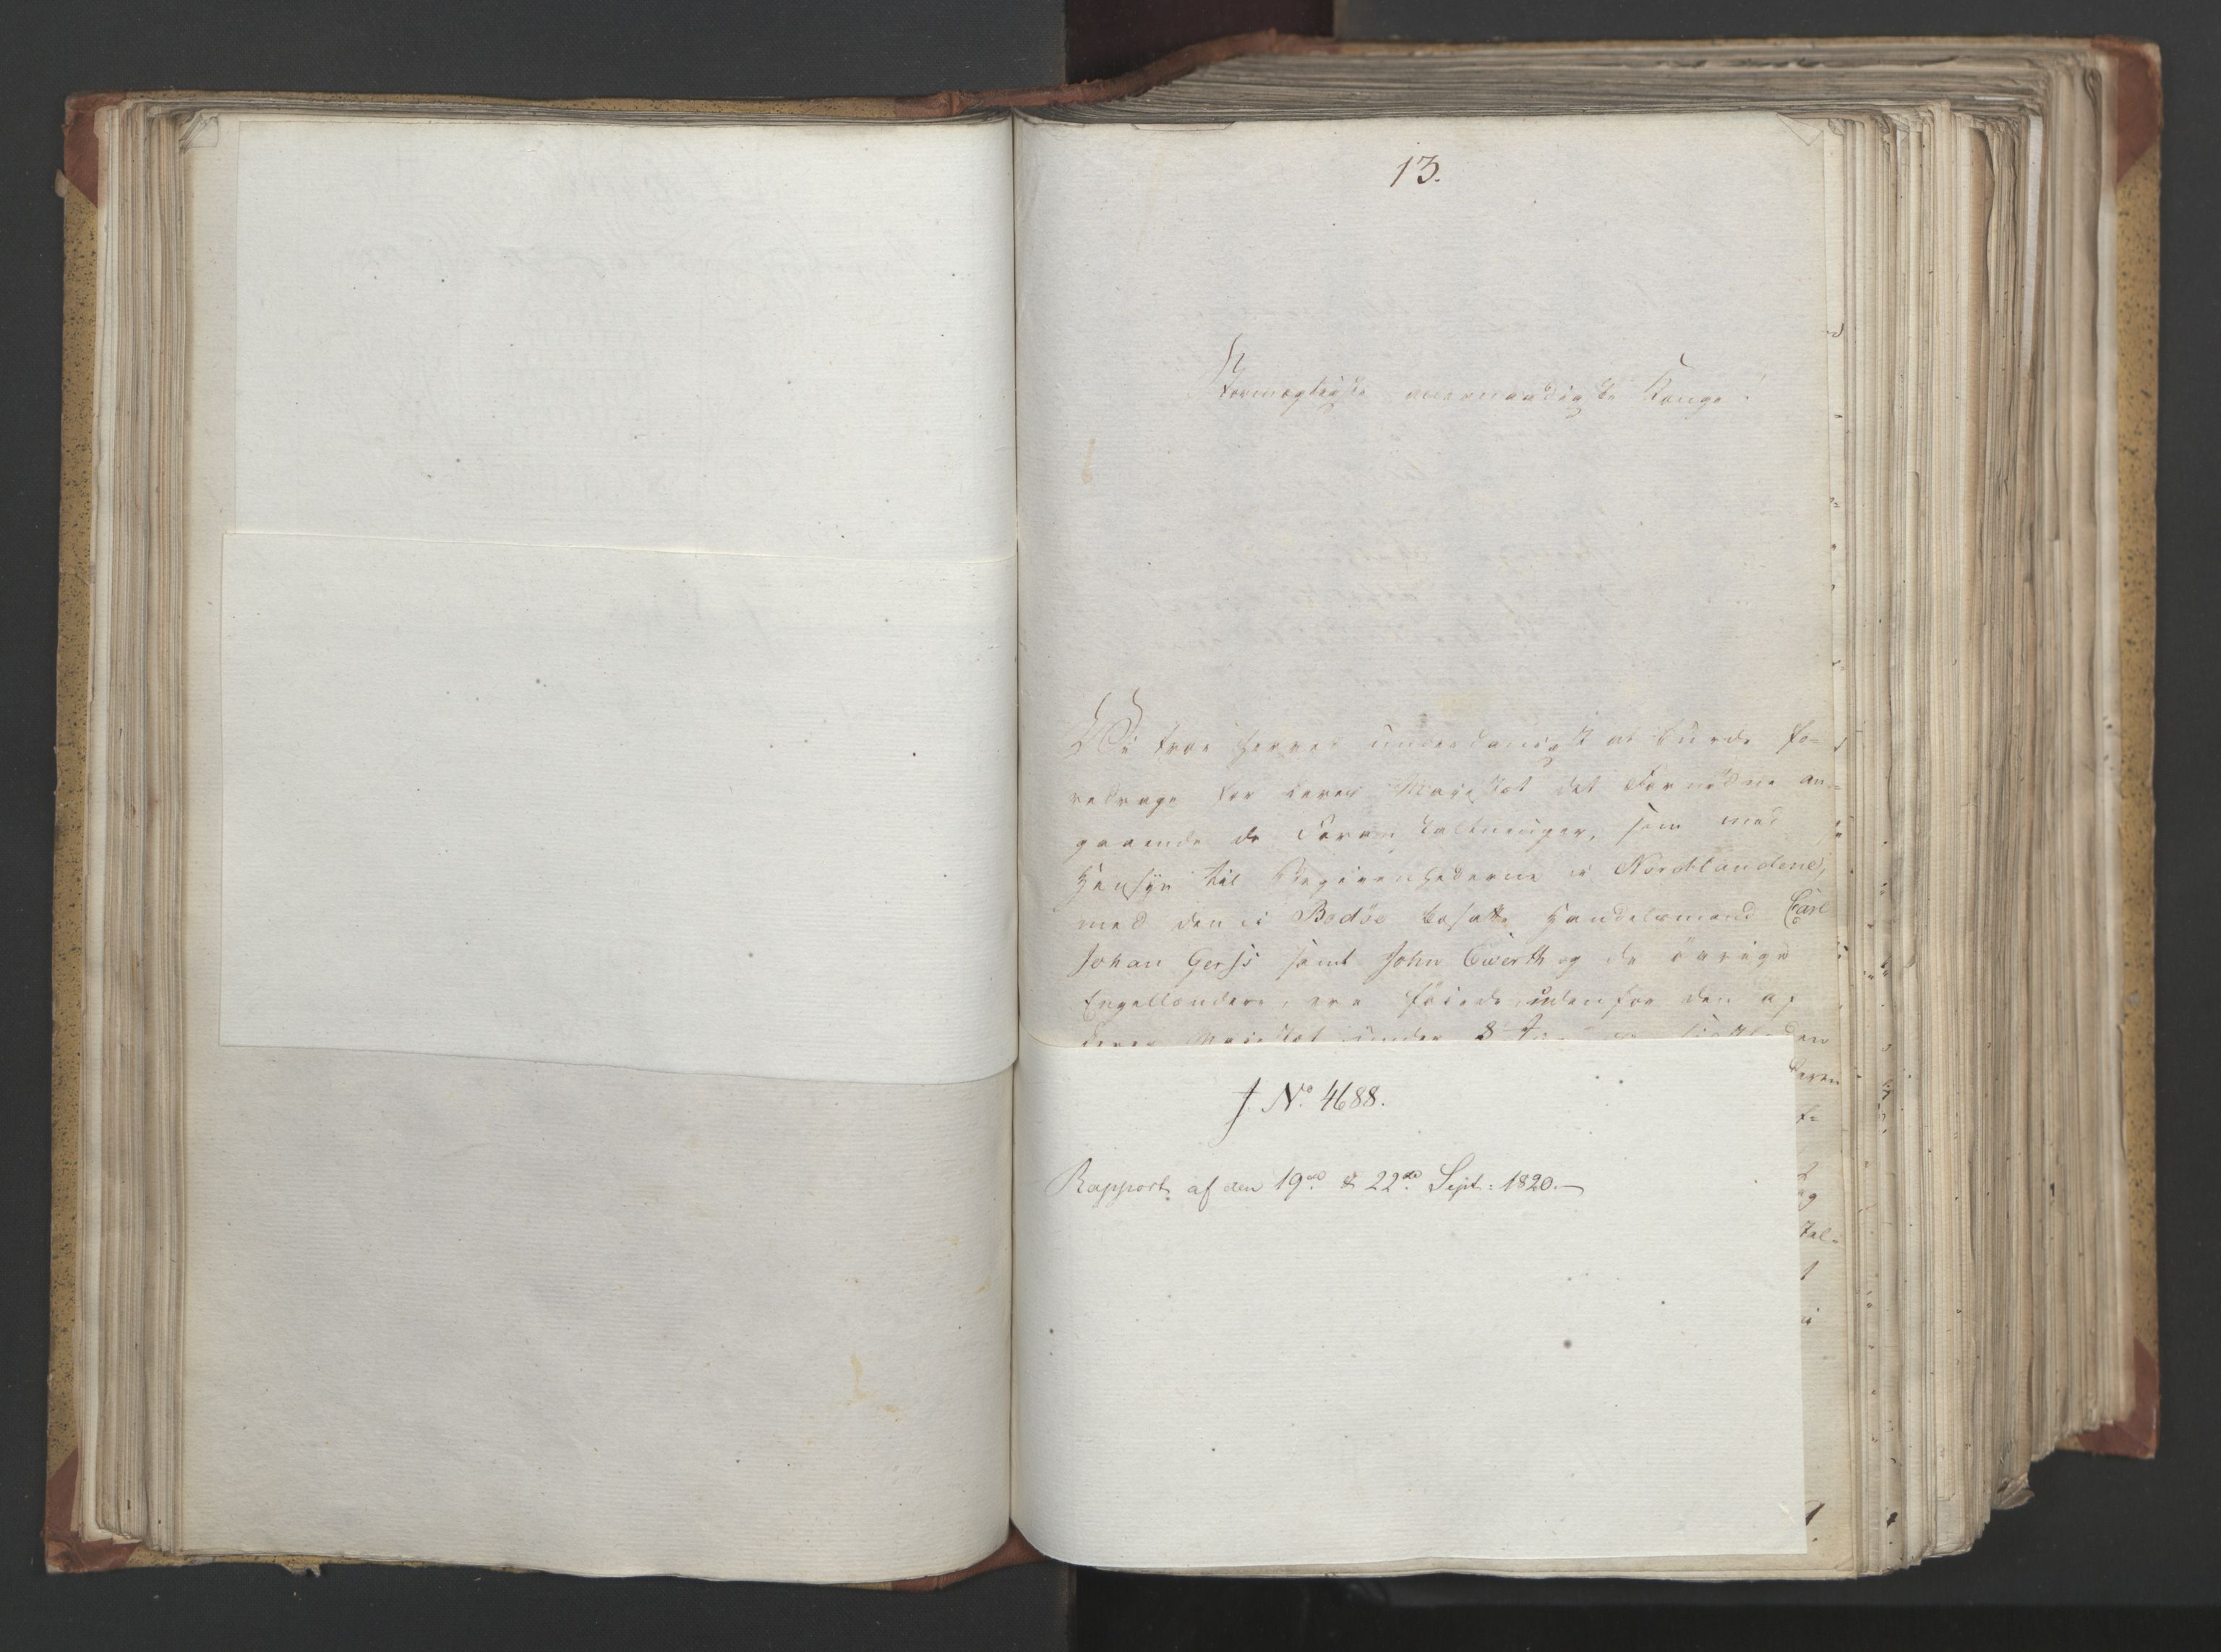 13.
Stormægtigste allernaadigste Konge!
Vi troe herved underdanigst at burde fo-
redrage for Deres Majestæt det Fornødne an-
gaaende de Foranstaltninger, som med
Hensyn til Begivenhederne i Nordlandene,
med den i Bodöe bosatte Handelsmand Carl
Johan Gerss samt John Everth og de övrige
Engellændere, ere föiede, udenfor den af
Deres Majestæt under 8
J. No. 4688.
Rapport af den 19de & 22de Sept: 1820.—